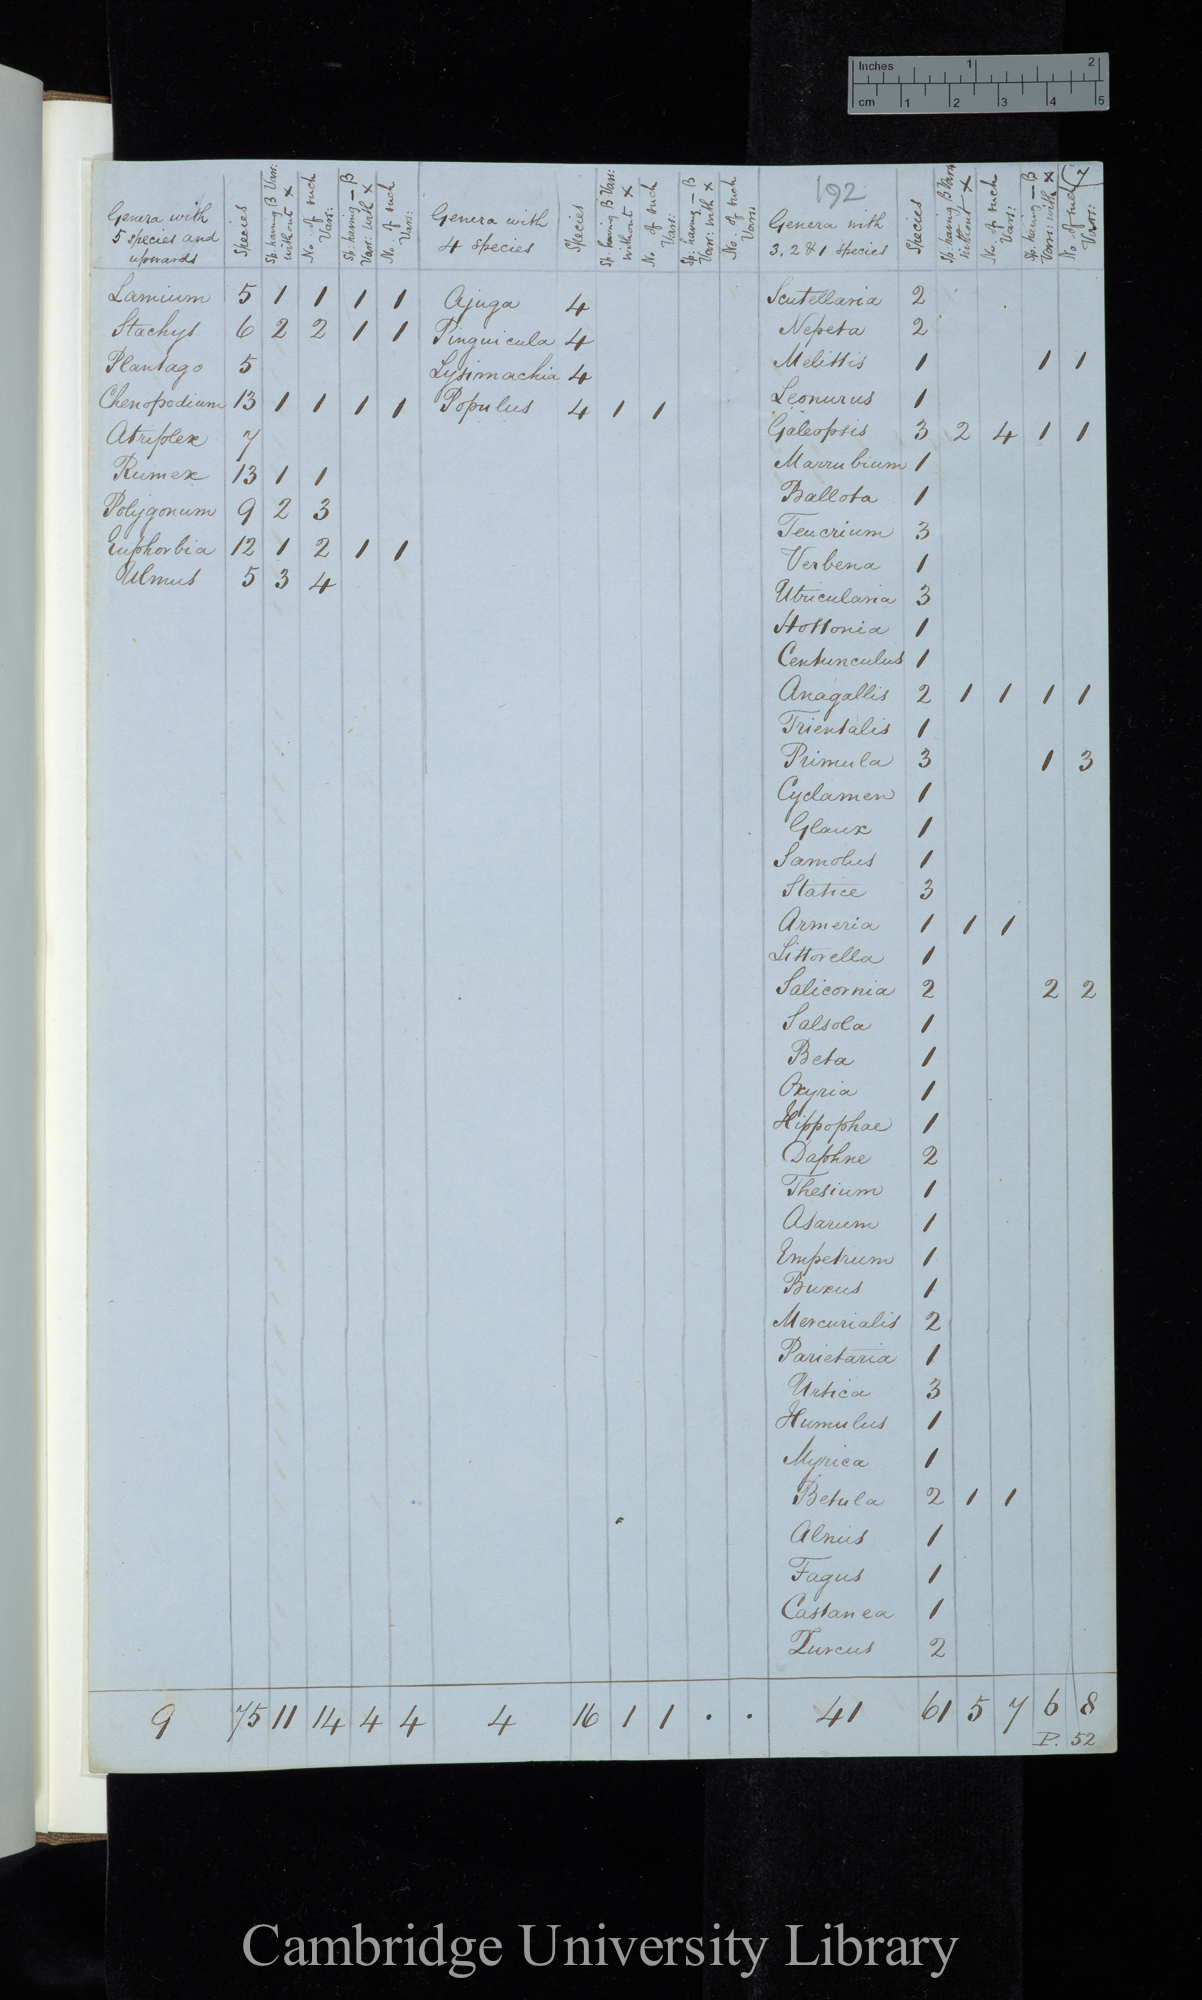 Inches 1 2
cm 1 2 3 4 5
192
7
Genera with 5 species and upwards | Species | Sp: having B Vars: without × | No. of such Vars: | Sp: having — B Vars: with × | No. of such Vars: | Genera with 4 species | Species | Sp: having B Vars: without × | No. of such Vars: | Sp: having — B Vars: with × | No. of such Vars: | Genera with 3, 2 & 1 species | Species | Sp: having B Vars without × | No. of such Vars: | Sp: having — B Vars: with × | No. of such Vars:
Lamium 5 1 1 1 1 Ajuga 4 Scutellaria 2
Stachys 6 2 2 1 1 Pinguicula 4 Nepeta 2
Plantago 5 Lysimachia 4 Melittis 1 1 1
Chenopodium 13 1 1 1 1 Populus 4 1 1 Leonurus 1
Atriplex 7 Galeopsis 3 2 4 1 1
Rumex 13 1 1 Marrubium 1
Polygonum 9 2 3 Ballota 1
Euphorbia 12 1 2 1 1 Teucrium 3
Ulmus 5 3 4 Verbena 1
Utricularia 3
Hottonia 1
Centunculus 1
Anagallis 2 1 1 1 1
Trientalis 1
Primula 3 1 3
Cyclamen 1
Glaux 1
Samolus 1
Statice 3
Armeria 1 1 1
Littorella 1
Salicornia 2 2 2
Salsola 1
Beta 1
Oxyria 1
Hippophae 1
Daphne 2
Thesium 1
Asarum 1
Empetrum 1
Buxus 1
Mercurialis 2
Parietaria 1
Urtica 3
Humulus 1
Myrica 1
Betula 2 1 1
Alnus 1
Fagus 1
Castanea 1
Qurcus 2
9 75 11 14 4 4 4 16 1 1 . . 41 61 5 7 6 8
P. 52
Cambridge University Library